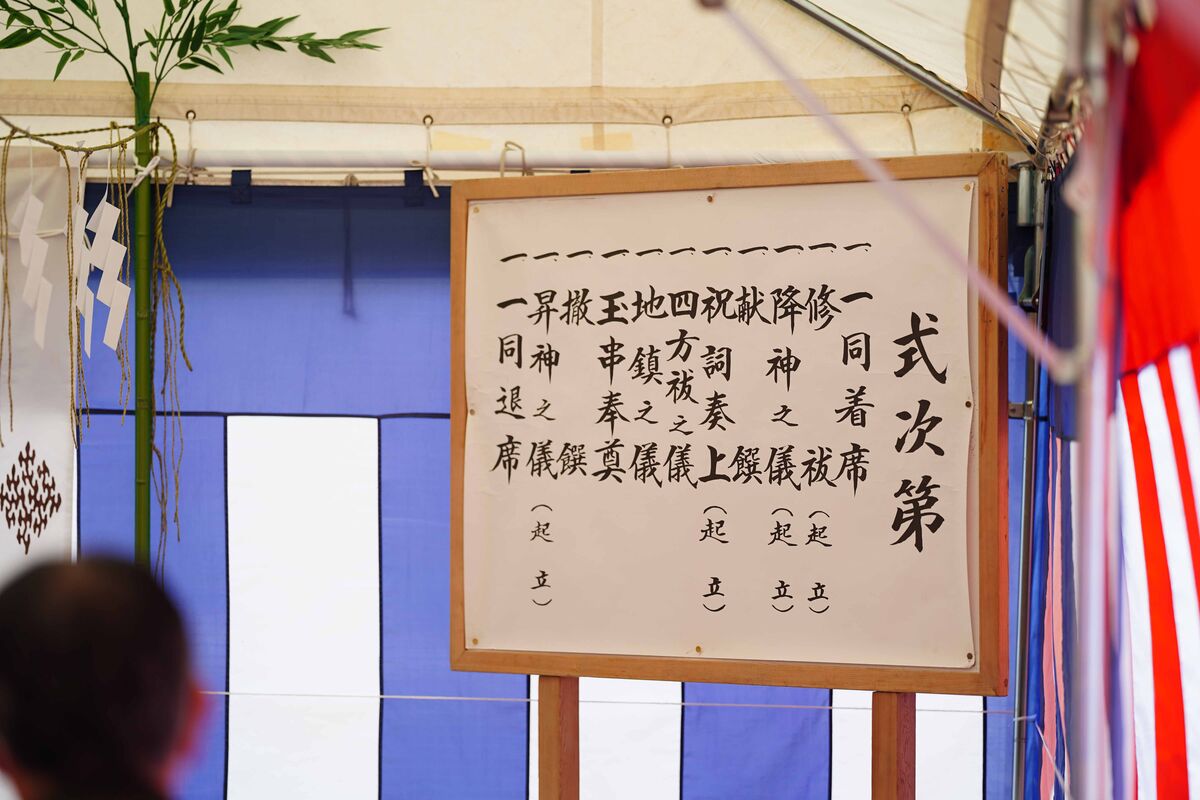 式次第
一 一同着席
一 修祓(起立)
一 降神之儀(起立)
一 献饌
一 祝詞奏上(起立)
一 四方祓之儀
一 地鎮之儀
一 玉串奉奠
一 撤饌
一 昇神之儀(起立)
一 一同退席